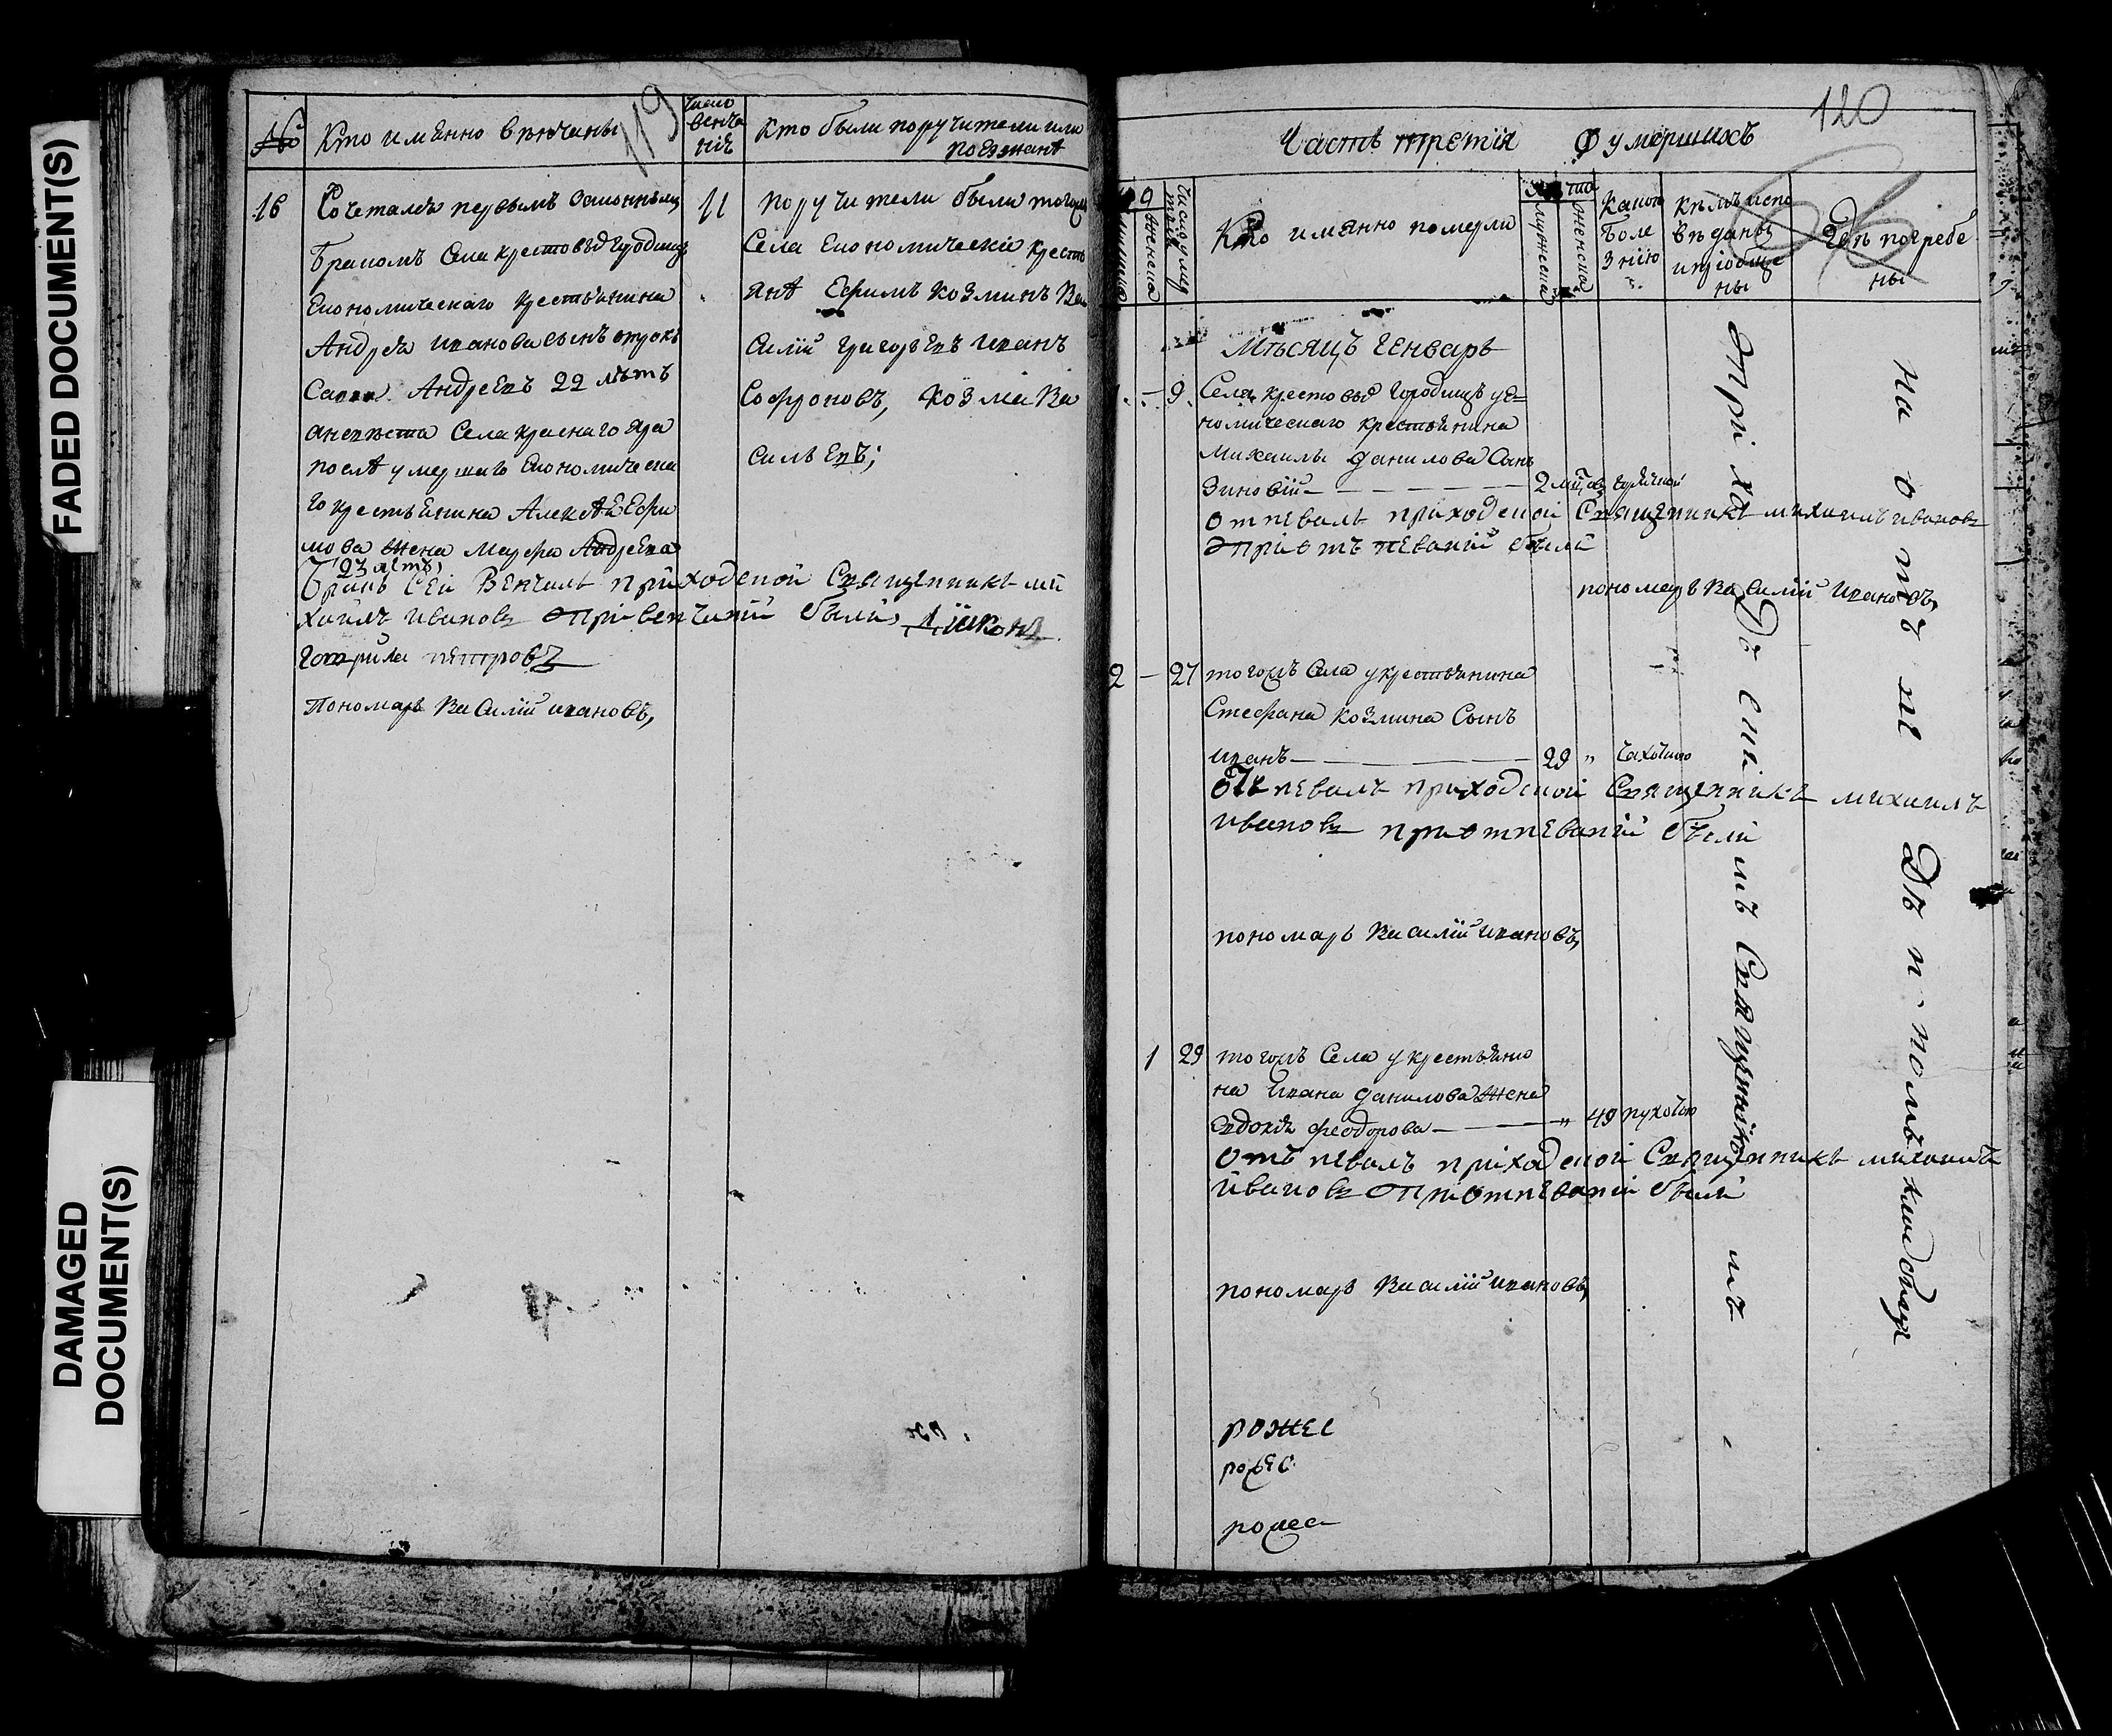 FADED DOCUMENT(S)
DAMAGED DOCUMENT(S)
119
№
Кто имянно венчаны
Число венчания
Кто были поручители или поезжанѣ
16
Сочетался первымъ законнымъ
бракомъ Села крестовыхъ Городищъ
Економическаго крестьянина
Андрея иванова сынъ отрокъ
Андреевъ 22 лѣтъ
Села краснаго Яра
послѣ умершаго Економическа
го крестьянина Алексѣя Ефи
мова жена Марфа Андреева
23 лѣтъ
бракъ сей Венчалъ приходской Священникъ ми
хаилъ ивановъ при венчании были
Гаврила петровъ
Пономарь Василий ивановъ,
11
поручители были тогожъ
Села Економическия кресть
янѣ Ефимъ козминъ Ва
силий григорьевъ иванъ
Софроновъ, козма Ва
сильевъ;
120
Часть третия О умершихъ
Кто имянно померли
мужеска
женска
Какою болезнию
кѣмъ исповѣданы и приобщены
Где погребены
Мѣсяцъ Генварь
1 - 9
Села крестовыхъ городищъ у еко=
номическаго крестьянина
Михаилы данилова Сынъ
Зиновий - 2 мѣц
отпевалъ приходской Священникъ михаилъ ивановъ
при отпевании были
пономарь Василий ивановъ,
2 - 27
тогожъ Села у крестьянина
Стефана козмина Сынъ
иванъ - 29 " чахоткою
отпевалъ приходской Священникъ михаилъ
ивановъ при отпевании были
пономарь Василий ивановъ,
1 29
тогожъ Села у крестьяни
на Ивана данилова жена
Евдокия феодорова - " 49
отъ певалъ приходской Священникъ михаилъ
ивановъ при отпевании были
пономарь Василий ивановъ,
приходскимъ Священникомъ
на отведенномъ кладбищѣ
рожес